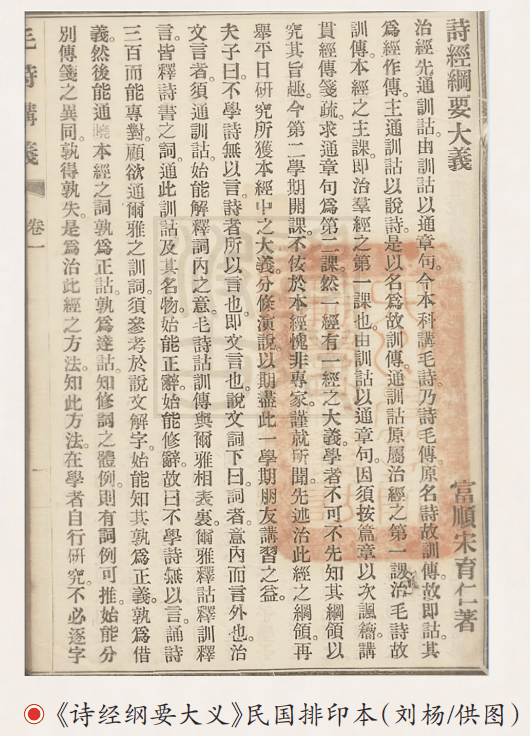 詩經綱要大義
富順宋育仁著
治經先通訓詁由訓詁以通章句。今本科講毛詩乃詩毛傳原名詩故訓傳。故即詁。其
為經作傳。主通訓詁以說詩。是以名為故訓傳。通訓詁原屬治經之第一課。治毛詩故
訓傳。本經之主課。即治羣經之第一課也。由訓詁以通章句。因須按篇章以次諷繪講
貫經傳箋疏。求通章句為第二課。然一經有一經之大義。學者不可不先知其綱領以
究其旨趣。今第二學期開課。不佞於本經愧非專家。謹就所聞。先述治此經之綱領。再
舉平日研究所獲本經中之大義。分條演說。以期盡此一學期朋友講習之益。
夫子曰。不學詩無以言。詩者所以言也。即文言也。說文詞下曰。詞者。意內而言外也。治
文言者。須通訓詁。始能解釋詞內之意。毛詩詁訓傳與爾雅相表裏。爾雅釋詁釋訓釋
言。皆釋詩書之詞。通此訓詁及其名物。始能正辭。始能修辭。故曰不學詩無以言。誦詩
三百而能專對。顧欲通爾雅之訓詞。須參考於說文解字。始能知其孰為正義。孰為借
義。然後能通曉本經之詞。孰為正詁。孰為達詁。知修詞之體例。則有詞例可推。始能分
別傳箋之異同。孰得孰失。是為治此經之方法。知此方法。在學者自行研究。不必逐字
毛詩講義
卷一
一
《诗经纲要大义》民国排印本(刘杨/供图)